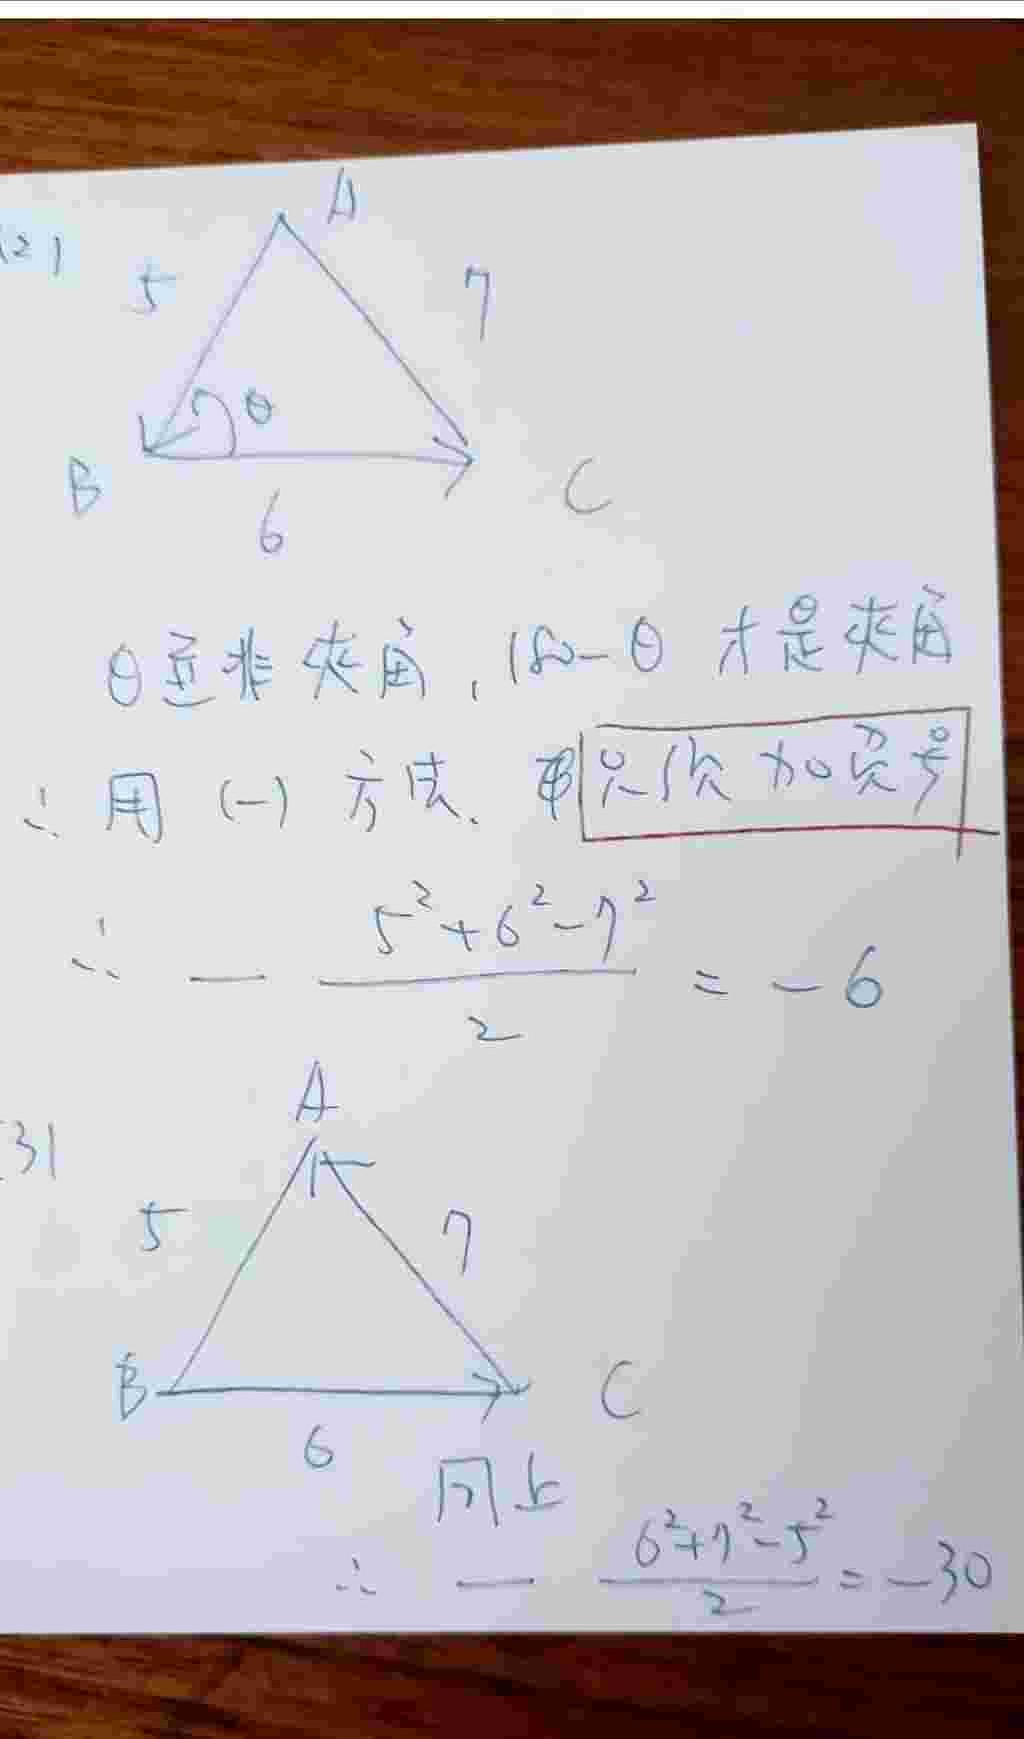 (2)
A
5
7
θ
B
C
6
θ並非夾角,180-θ 才是夾角
∴ 用 (一) 方法. 只須加負号
∴ - (5²+6²-7²)/2 = -6
(3)
A
5
7
B
C
6
同上
∴ - (6²+7²-5²)/2 = -30